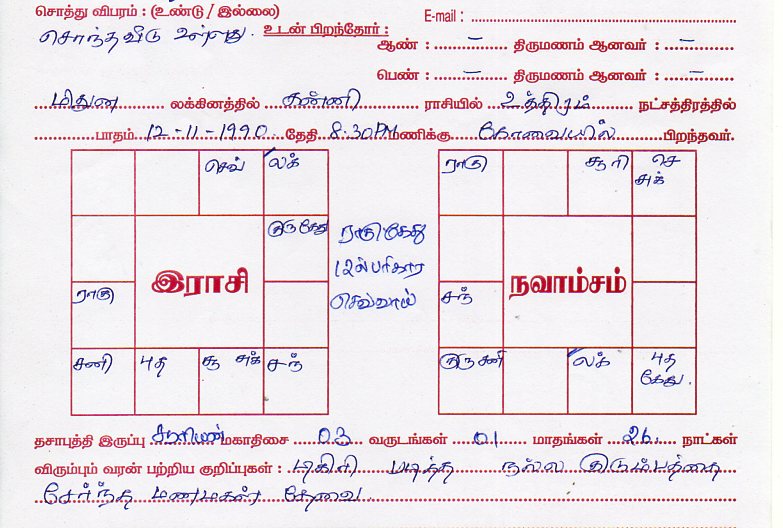 சொத்து விபரம் : (உண்டு / இல்லை)
E-mail :
சொந்தவீடு உள்ளது. உடன் பிறந்தோர் :
ஆண் : – திருமணம் ஆனவர் : –
பெண் : – திருமணம் ஆனவர் : –
மிதுன லக்கினத்தில் கன்னி ராசியில் உத்திரம் நட்சத்திரத்தில்
பாதம் 12-11-1990 தேதி 8.30PM மணிக்கு கோவையில் பிறந்தவர்.
செவ் லக்
ராகு சூரி செ சுக்
குரு கேது
ராகு கேது
12ல் பரிகார
செவ்வாய்
இராசி
நவாம்சம்
ராகு
சந்
சனி புத சூ சுக் சந்
குரு சனி லக் புத கேது.
தசாபுத்தி இருப்பு சூரியன் மகாதிசை 03 வருடங்கள் 01 மாதங்கள் 26 நாட்கள்
விரும்பும் வரன் பற்றிய குறிப்புகள் : டிகிரி படித்த நல்ல குடும்பத்தை
சேர்ந்த மணமகன் தேவை.